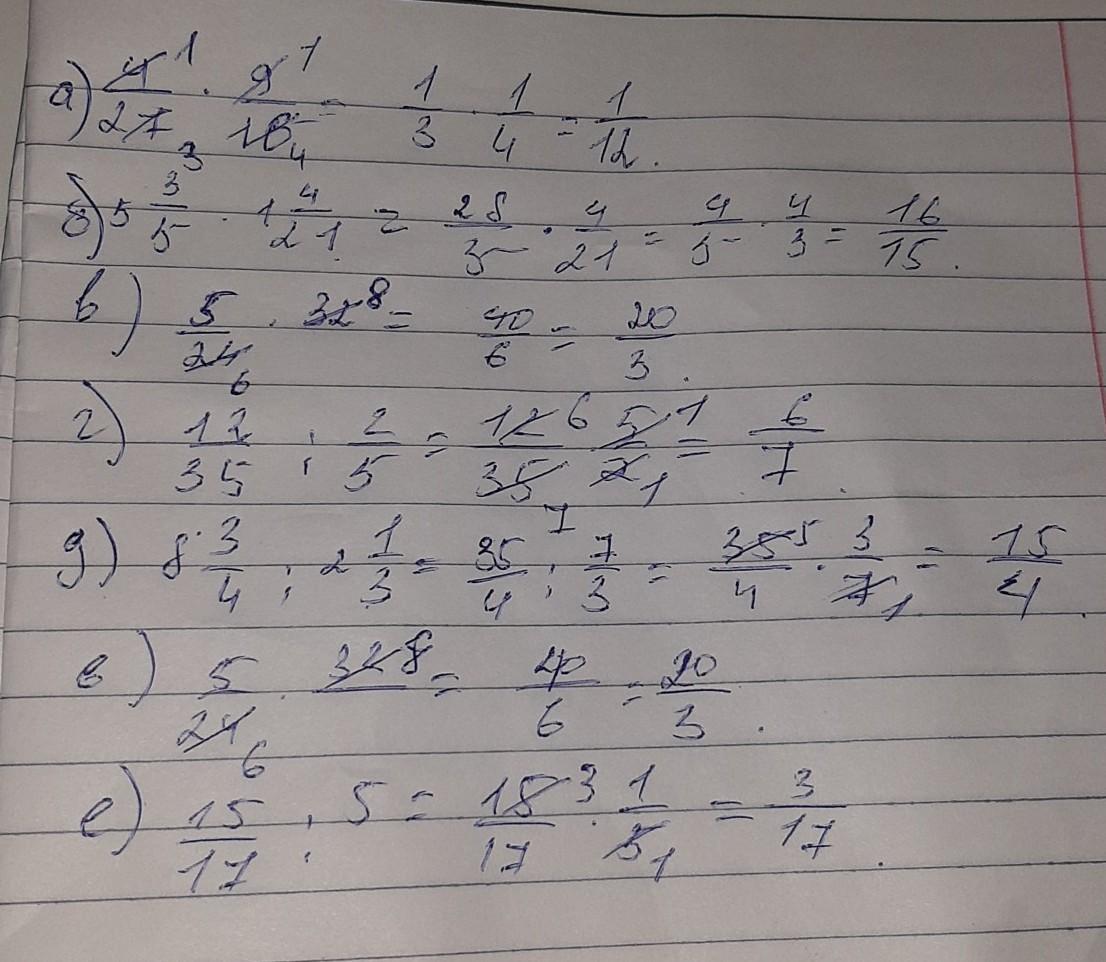 а) 4/27 1 3 · 9/16 1 4 = 1/3 · 1/4 = 1/12.
б) 5 3/5 · 1 4/21 = 28/5 · 4/21 = 4/5 · 4/3 = 16/15.
в) 5/24 6 · 32 8 = 40/6 = 20/3.
г) 12/35 : 2/5 = 12/35 6 7 5/2 1 1 = 6/7.
д) 8 3/4 : 2 1/3 = 35/4 : 7/3 = 35/4 5 · 3/7 1 = 15/4.
в) 5/24 6 · 32 8 = 40/6 = 20/3.
е) 15/17 : 5 = 15/17 3 · 1/5 1 = 3/17.